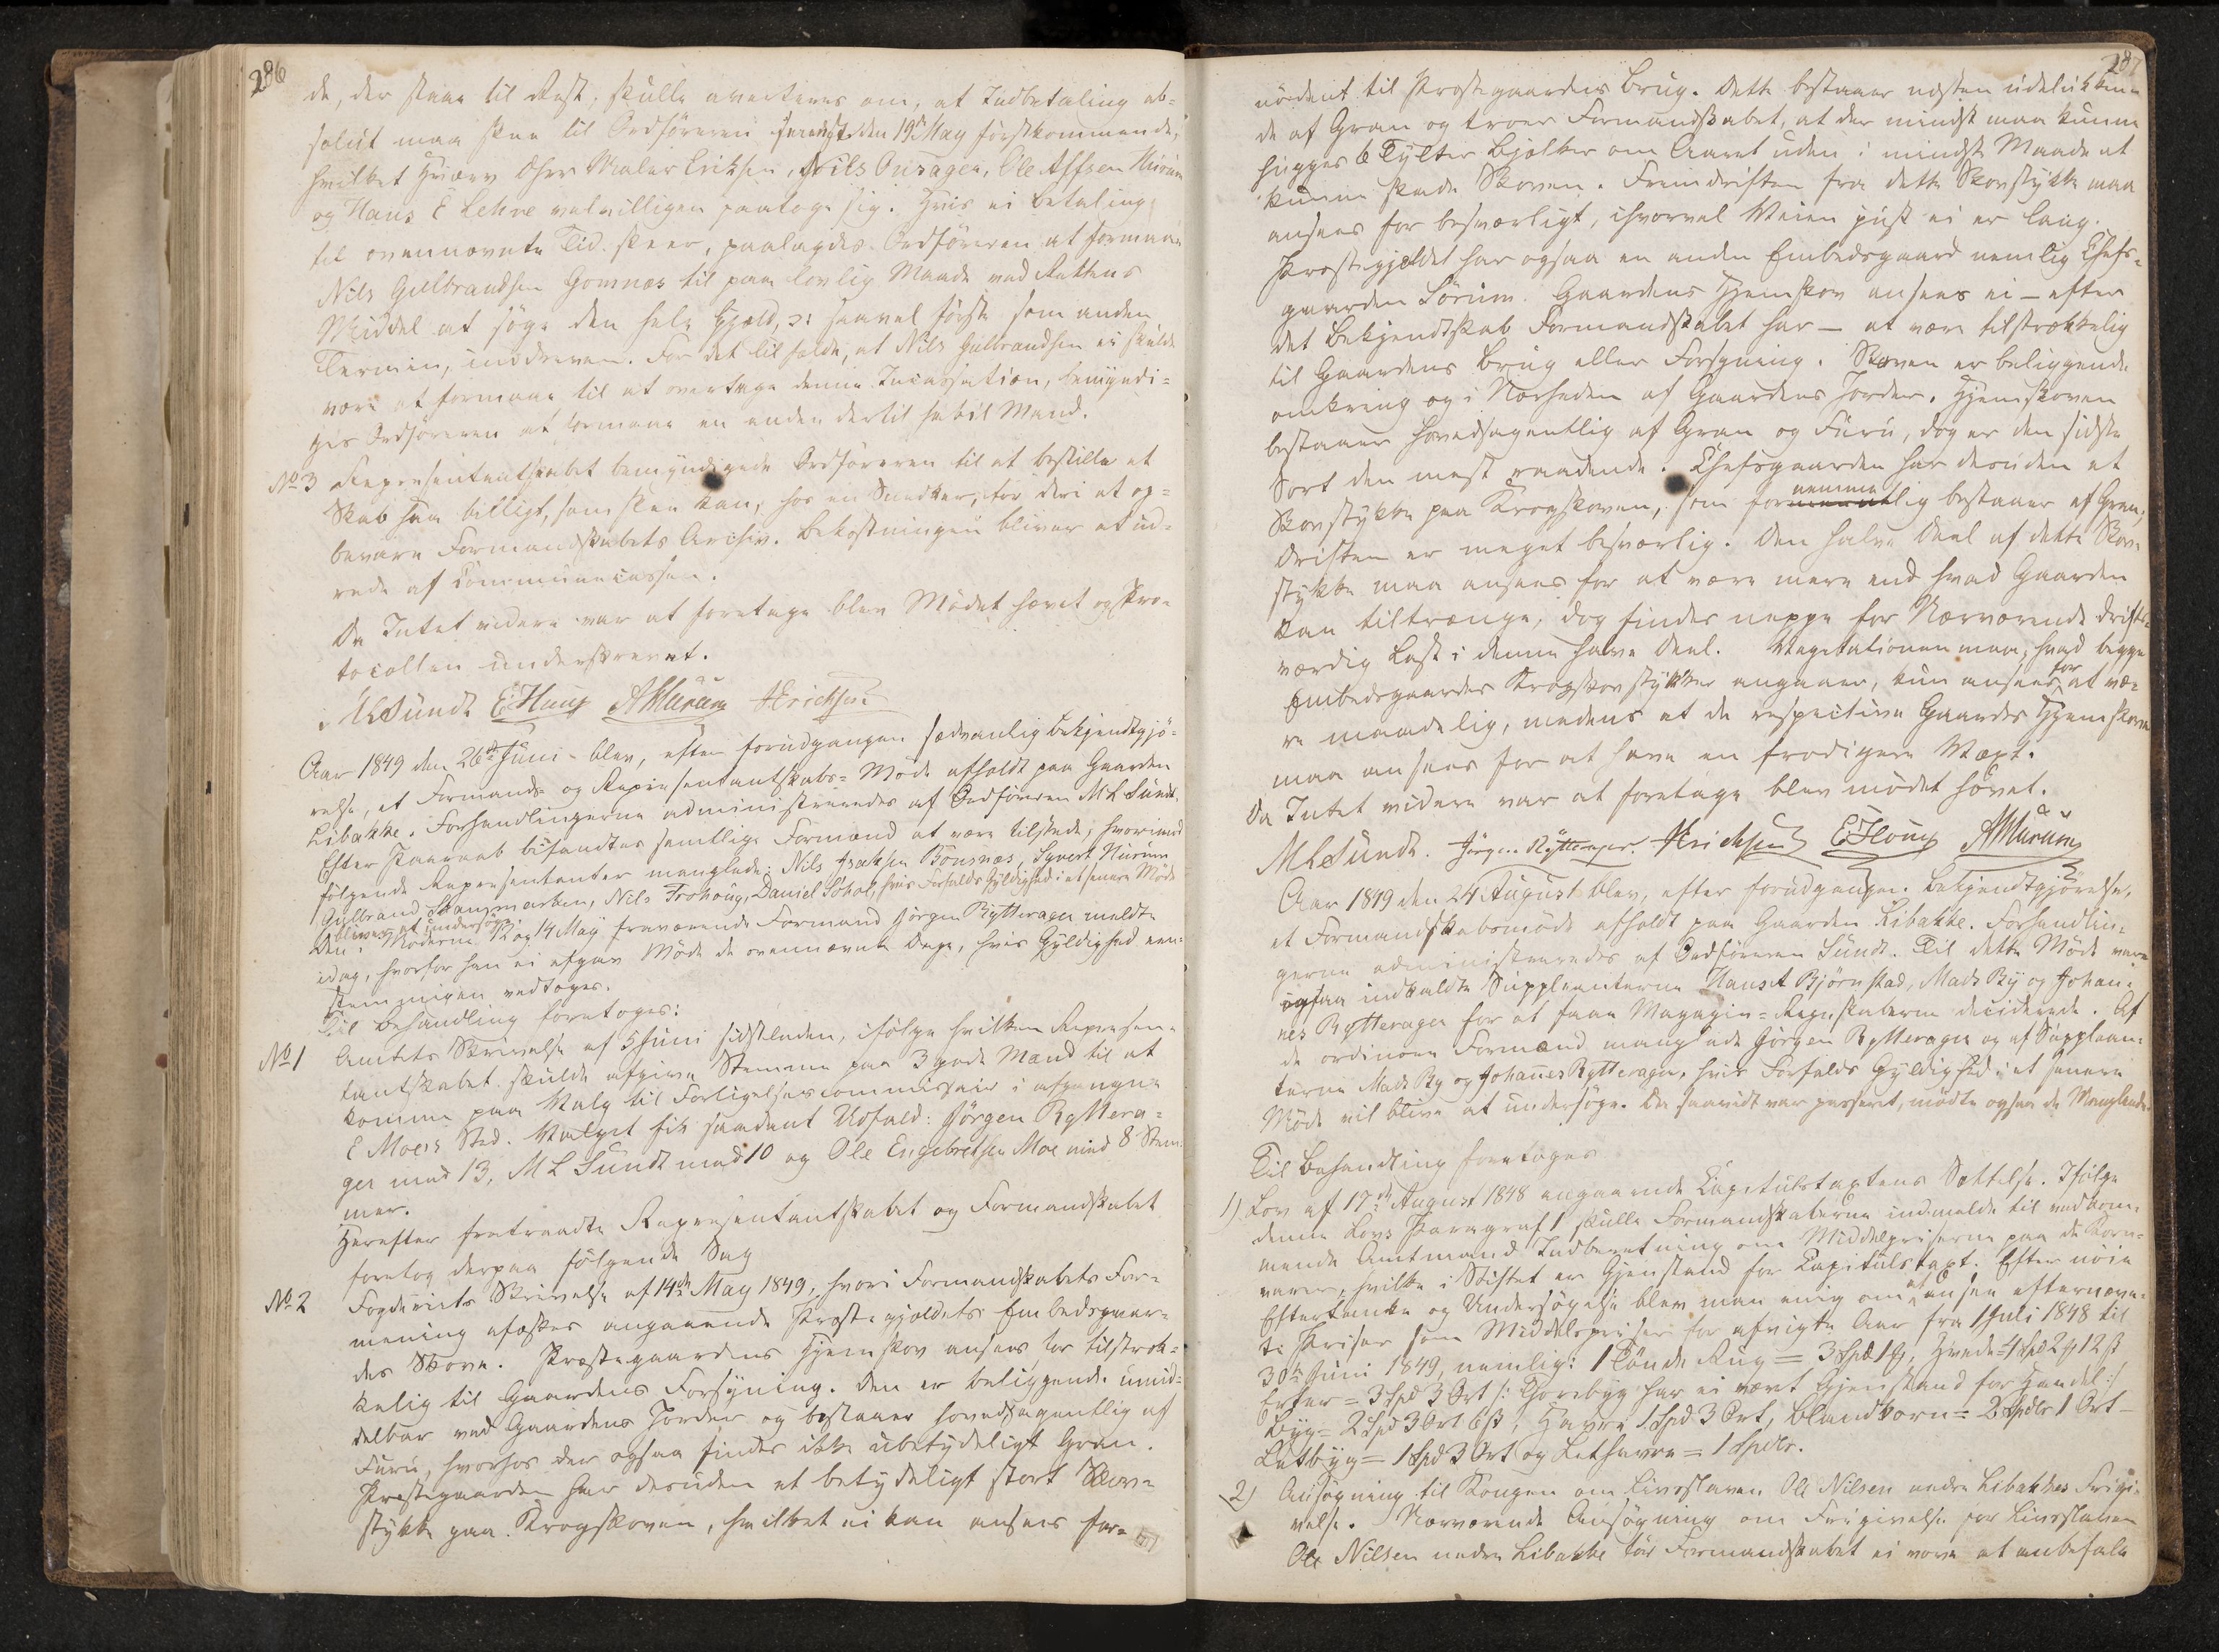 286
de, der staar til Rest, skulle averteres om, at Indbetaling ab-
solut maa skee til Ordføreren senest den 19de May førstkommende,
hvilket Hverv Dhrr Maler Eriksen, Nils Onsager, Ole Alfsen
og Hans E Lehne velvilligen paatoge sig. Hvis ei Betaling
til ovennævnte Tid skeer, paalagdes Ordføreren at formaae
Nils Gulbrandsen Gomnæs til paa lovlig Maade ved Rettens
Middel at søge den hele Gjæld, ɔ: saavel første som anden
Termin, inddreven. For det Tilfælde, at Nils Gulbrandsen ei skulde
være at formaae til at overtage denne Incassation, bemyndi-
ges Ordføreren at formaae en anden dertil habil Mand.
No 3 Repræsentantskabet bemyndigede Ordføreren til at bestille et
Skab saa billigt, som skee kan, hos en Snedker, for deri at op-
bevare Formandskabets Archiv. Bekostningen bliver at ud-
rede af Communecassen.
Da Intet videre var at foretage blev Mødet hævet og Pro-
tocollen underskrevet.
MLSundt EHoug AMurum HErichsen
Aar 1849 den 26de Juni blev, efter forudgangen sædvanlig Bekjendtgjø-
relse, et Formands- og Repræsentantskabs-Møde afholdt paa Gaarden
Libakke. Forhandlingerne administreredes af Ordføreren M L Sundt.
Efter Paaraab befandtes samtlige Formænd at være tilstede, hvorimod
følgende Repræsentanter manglede: Nils Isaksen Bonsnæs, Syvert Hurum
Gulbrand Stangmarken, Nils Frohoug, Daniel Sohol, hvis Forfalds Gyldighed i et senere Møde
bliver at undersøge.
Den i Møderne 12 og 14 May fraværende Formand Jørgen Rytterager meldte
idag, hvorfor han ei afgav Møde de ovennævnte Dage, hvis Gyldighed een-
stemmigen vedtoges.
Til Behandling foretoges:
No 1 Amtets Skrivelse af 5 Juni sidstleden, ifølge hvilken Repræsen-
tantskabet skulde afgive Stemme paa 3 gode Mænd til at
komme paa Valg til Forligelsescommissair i afgangne
E Moes Sted. Valget fik saadant Udfald: Jørgen Ryttera-
ger med 13, M L Sundt med 10 og Ole Engebretsen Moe med 8 Stem-
mer.
Herefter fratraadte Repræsentantskabet og Formandskabet
foretog derpaa følgende Sag
No 2 Fogderiets Skrivelse af 14de May 1849, hvori Formandskabets For-
mening æskes angaaende Præstegjældets Embedsgaar-
des Skove. Præstegaardens Hjemskov ansees for tilstræk-
kelig til Gaardens Forsyning. Den er beliggende umid-
delbar ved Gaardens Jorder og bestaaer hovedsagentlig af
Furu, hvorhos der ogsaa findes ikke ubetydeligt Gran.
Præstegaarden har desuden et betydeligt stort Skov-
stykke paa Krogskoven, hvilket ei kan ansees for
287
nødent til Præstegaardens Brug. Dette bestaaer næsten udelukken-
de af Gran og troer Formandskabet, at der mindst maa kunne
hugges 6 Tylter Bjælker om Aaret uden i mindste Maade at
kunne skade Skoven. Fremdriften fra dette Skovstykke maa
ansees for besværligt, ihvorvel Veien just ei er lang.
Præstegjeldet har ogsaa en anden Embedsgaard nemlig Chefs-
gaarden Sørum. Gaardens Hjemskov ansees ei – efter
det Bekjendtskab Formandskabet har – at være tilstrækkelig
til Gaardens Brug eller Forsyning. Skoven er beliggende
omkring og i Nærheden af Gaardens Jorder. Hjemskoven
bestaaer hovedsagentlig af Gran og Furu, dog er den sidste
Sort den mest raadende. Chefsgaarden har desuden et
Skovstykke paa Krogskoven, som fornemmelig bestaaer af Gran,
Driften er meget besværlig. Den halve Deel af dette Skov-
stykke maa ansees for at være mere end hvad Gaarden
kan tiltrænge, dog findes neppe for Nærværende drifts-
værdig Last i denne halve Deel. Vegetationen maa, hvad begge
Embedsgaardes Krogskovstykker angaaer, kun ansees for at væ-
re maadelig, medens at de respective Gaardes Hjemskove
maa ansees for at have en frodigere Vext.
Da Intet videre var at foretage blev mødet hævet.
MLSundt. Jørgen Rytterager. HErichsen EHoug AMurum
Aar 1849 den 24 August blev, efter forudgangen Bekjendtgjørelse,
et Formandskabsmøde afholdt paa Gaarden Libakke. Forhandlin-
gerne administreredes af Ordføreren Sundt. Til dette Møde vare
ogsaa indkaldte Suppleanterne Hans A Bjørnstad, Mads By og Johan-
nes Rytterager for at faae Magazin-Regnskaberne deciderede. Af
de ordinære Formænd manglede Jørgen Rytterager og af Supplean-
terne Mads By og Johannes Rytterager, hvis Forfalds Gyldighed i et senere
Møde vil blive at undersøge. Da saavidt var passeret, mødte ogsaa de Manglende.
Til Behandling foretoges
1) Lov af 17de August 1848 angaaende Capitelstaxtens Sættelse. Ifølge
denne Lovs Paragraf 1 skulle Formandskaberne indmelde til vedkom-
mende Amtmand Indberetning om Middelpriserne paa de Korn-
varer, hvilke i Stiftet er Gjenstand for Capitelstaxt. Efter nøie
Eftertanke og Undersøgelse blev man enig om at ansee efternævn-
te Priser som Middelpriser for afvigte Aar fra 1 Juli 1848 til
30te Juni 1849, nemlig: 1 Tønde Rug = 3 Spd 1 ₰, Hvede = 4 Spd 2 ₰ 12 ß
Erter = 3 Spd 3 Ort /: Torebyg har ei været Gjenstand for Handel :/
Byg = 2 Spd 3 Ort 6 ß, Havre 1 Spd 3 Ort, Blandkorn = 2 Spdlr 1 Ort –
Letbyg = 1 Spd 3 Ort og Lethavre = 1 Spdlr.
2) Ansøgning til Kongen om Livsslaven Ole Nilsen nedre Libakkes Frigi-
velse. Nærværende Ansøgning om Frigivelse for Livsslaven
Ole Nilsen nedre Libakke tør Formandskabet ei vove at anbefale